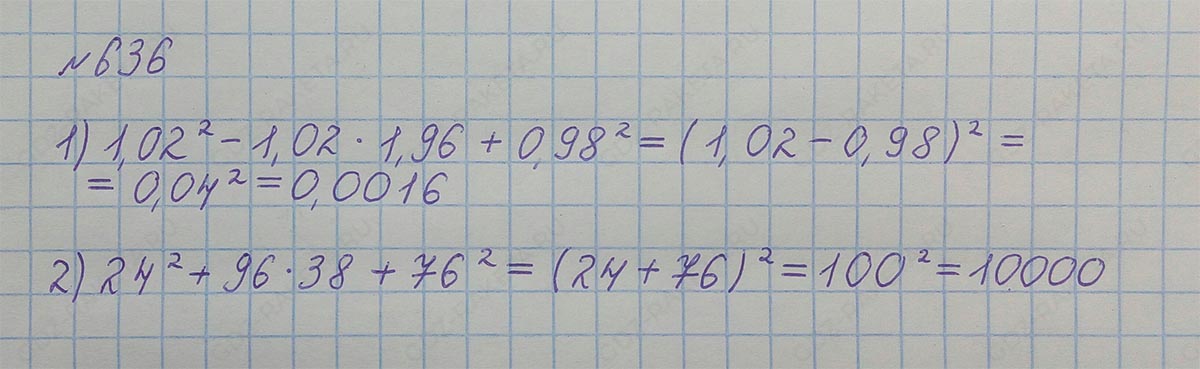 №636
1) 1,02² - 1,02 · 1,96 + 0,98² = (1,02 - 0,98)² =
= 0,04² = 0,0016
2) 24² + 96 · 38 + 76² = (24 + 76)² = 100² = 10000